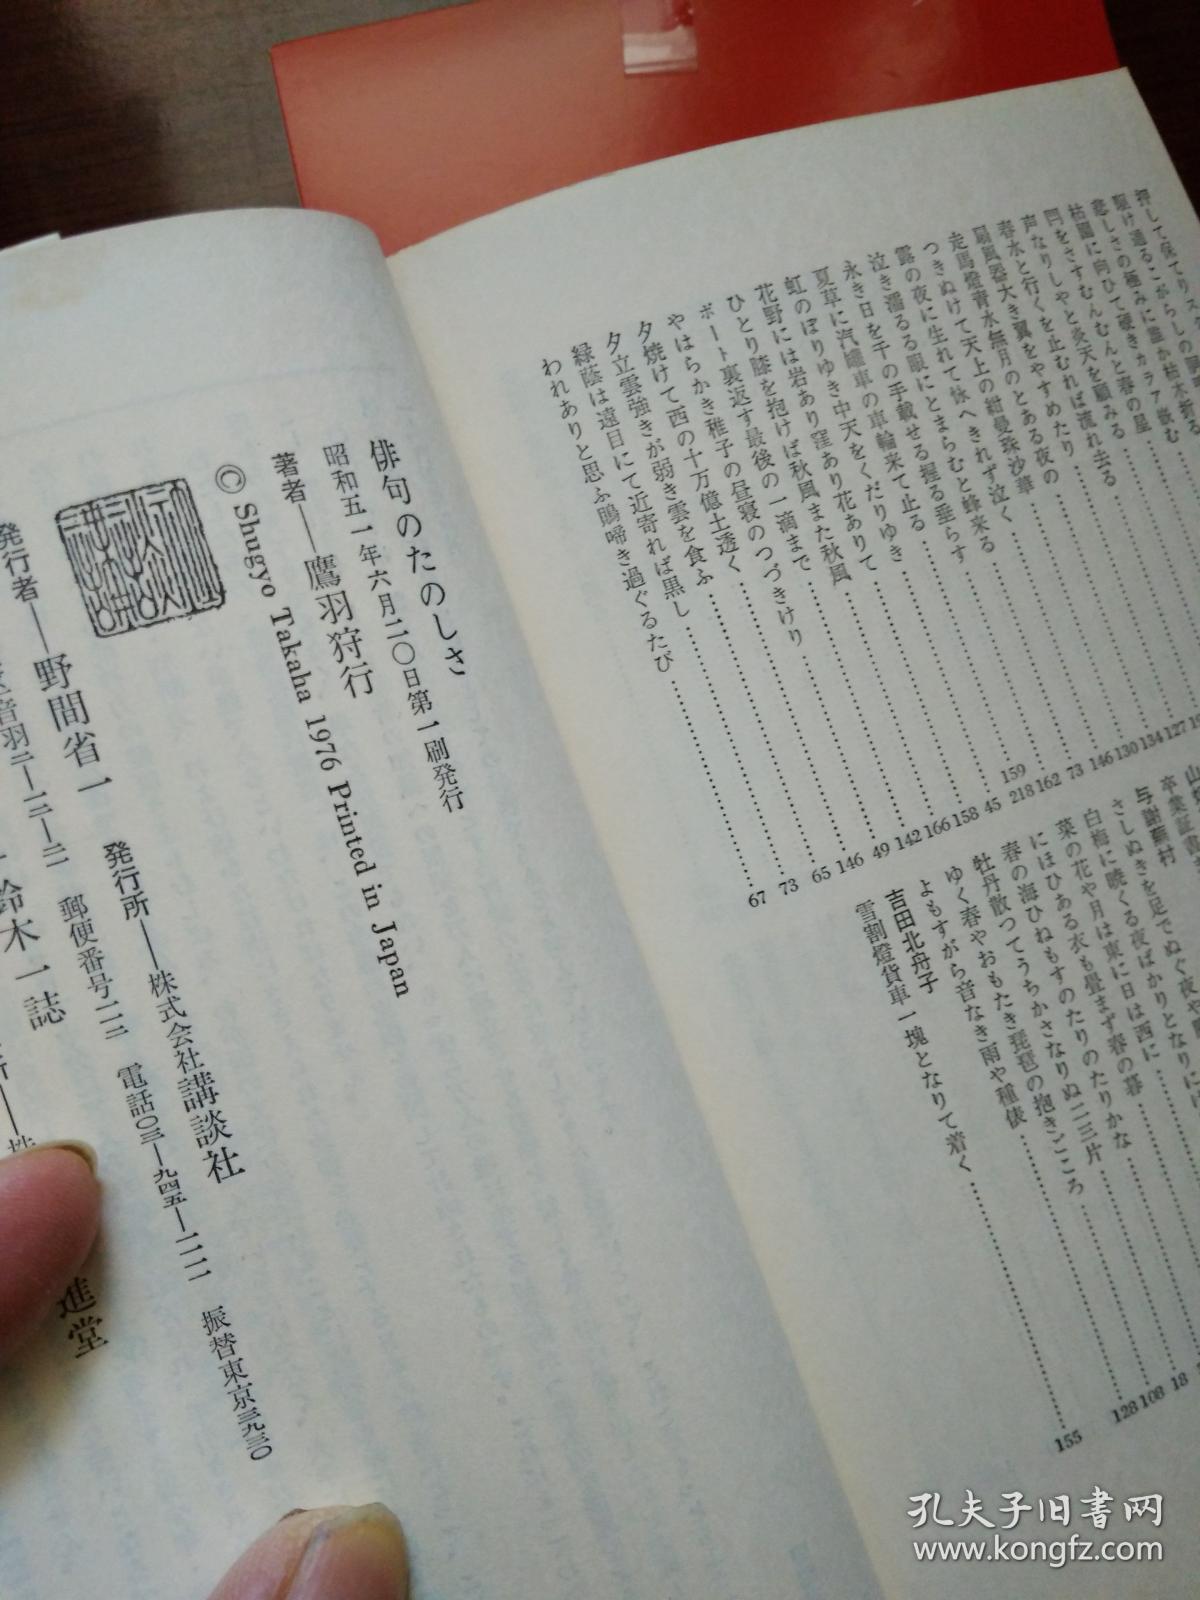 押して保てり
駆け通るこがらしの
悲しさの極みに誰か枯木折る
枯園に向ひて硬きカラア嵌む
閂をさすむんむんと春の星
声なりしやと炎天を顧みる
春水と行くを止むれば流れ去る
扇風器大き翼をやすめたり
走馬燈青水無月のとある夜の
つきぬけて天上の紺曼珠沙華
露の夜に生れて怺へきれず泣く
泣き濡るる眼にとまらむと蜂来る
永き日を千の手載せる握る垂らす
夏草に汽罐車の車輪来て止る
虹のぼりゆき中天をくだりゆき
花野には岩あり窪あり花ありて
ひとり膝を抱けば秋風また秋風
ボート裏返す最後の一滴まで
やはらかき稚子の昼寝のつづきけり
夕焼けて西の十万億土透く
夕立雲強きが弱き雲を食ふ
緑蔭は遠目にて近寄れば黒し
われありと思ふ鵙啼き過ぐるたび
127 134 130 146 73 162 218 159 45 158 166 142 49 146 65 73 67
卒業証書
与謝蕪村
さしぬきを足でぬぐ夜や
白梅に暁くる夜ばかりとなりに
菜の花や月は東に日は西に
にほひある衣も畳まず春の暮
春の海ひねもすのたりのたりかな
牡丹散つてうちかさなりぬ二三片
ゆく春やおもたき琵琶の抱きごころ
よもすがら音なき雨や種俵
吉田北舟子
雪割燈貨車一塊となりて着く
18 108 128 155
俳句のたのしさ
昭和五一年六月二〇日第一刷発行
著者—鷹羽狩行
© Shugyo Takaha 1976 Printed in Japan
発行者—野間省一
発行所—株式会社講談社
音羽二—一二—二一 郵便番号一一二 電話〇三—九四五—一一一一 振替東京三九三〇
鈴木一誌
進堂
孔夫子旧书网
www.kongfz.com